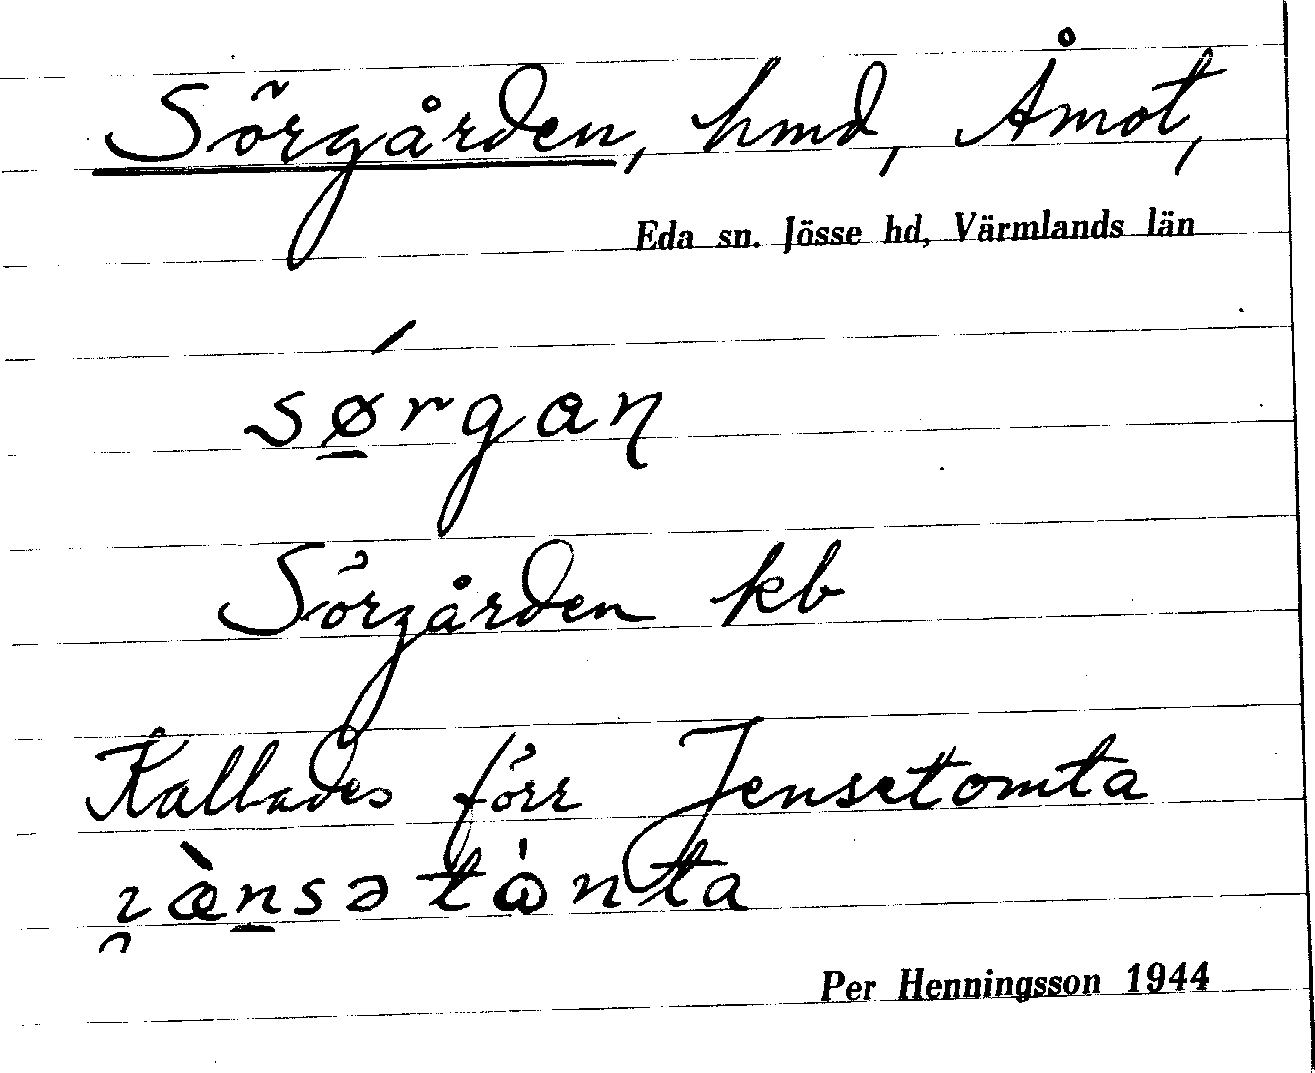 Sörgården, hmd, Åmot,
Eda sn. Jösse hd, Värmlands län
sǿ̱rgaɳ
Sörgården kb
Kallades förr Jensetomta
ı̯æ̀ṉsətὼnta
Per Henningsson 1944